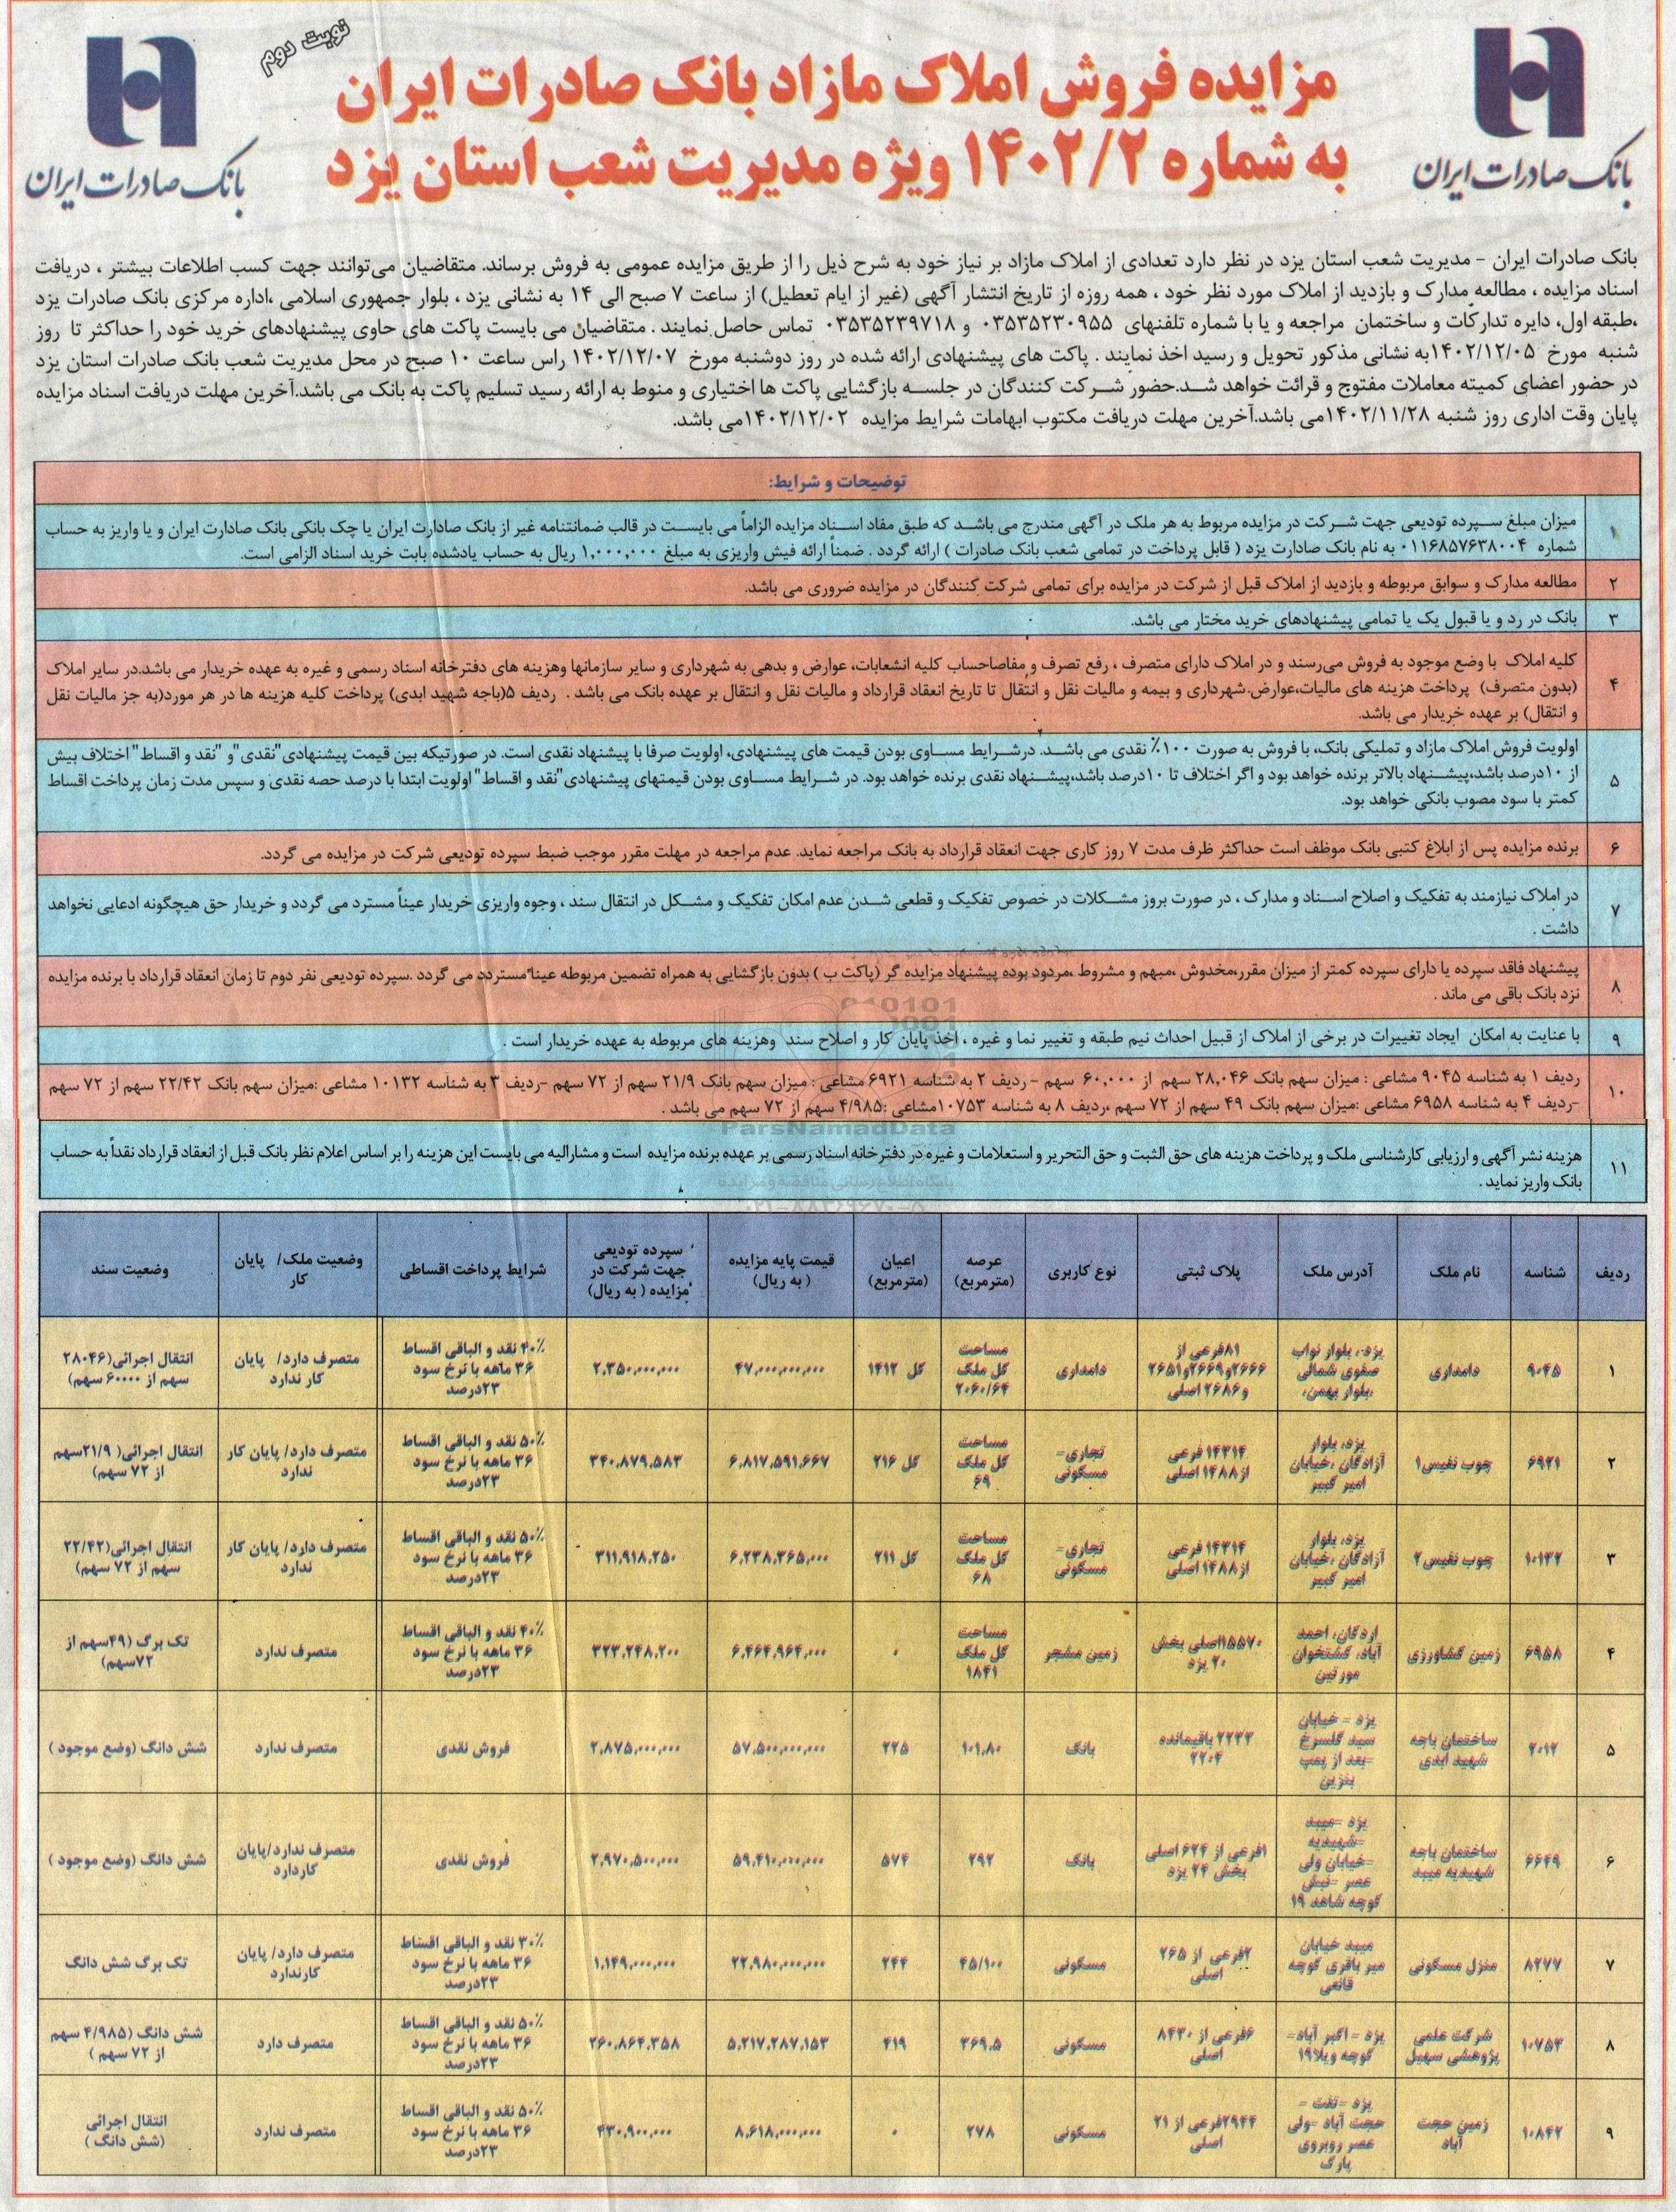 نوبت دوم
بانک صادرات ایران
بانک صادرات ایران
مزایده فروش املاک مازاد بانک صادرات ایران
به شماره ۱۴۰۲/۲ ویژه مدیریت شعب استان یزد
بانک صادرات ایران - مدیریت شعب استان یزد در نظر دارد تعدادی از املاک مازاد بر نیاز خود به شرح ذیل را از طریق مزایده عمومی به فروش برساند. متقاضیان می‌توانند جهت کسب اطلاعات بیشتر ، دریافت
اسناد مزایده ، مطالعه مدارک و بازدید از املاک مورد نظر خود ، همه روزه از تاریخ انتشار آگهی (غیر از ایام تعطیل) از ساعت ۷ صبح الی ۱۴ به نشانی یزد ، بلوار جمهوری اسلامی ،اداره مرکزی بانک صادرات یزد
،طبقه اول، دایره تدارکات و ساختمان مراجعه و یا با شماره تلفنهای ۰۳۵۳۵۲۳۰۹۵۵ و ۰۳۵۳۵۲۳۹۷۱۸ تماس حاصل نمایند . متقاضیان می بایست پاکت های حاوی پیشنهادهای خرید خود را حداکثر تا روز
شنبه مورخ ۱۴۰۲/۱۲/۰۵به نشانی مذکور تحویل و رسید اخذ نمایند . پاکت های پیشنهادی ارائه شده در روز دوشنبه مورخ ۱۴۰۲/۱۲/۰۷ راس ساعت ۱۰ صبح در محل مدیریت شعب بانک صادرات استان یزد
در حضور اعضای کمیته معاملات مفتوح و قرائت خواهد شد.حضور شرکت کنندگان در جلسه بازگشایی پاکت ها اختیاری و منوط به ارائه رسید تسلیم پاکت به بانک می باشد.آخرین مهلت دریافت اسناد مزایده
پایان وقت اداری روز شنبه ۱۴۰۲/۱۱/۲۸می باشد.آخرین مهلت دریافت مکتوب ابهامات شرایط مزایده ۱۴۰۲/۱۲/۰۲می باشد.
توضیحات و شرایط:
۱ میزان مبلغ سپرده تودیعی جهت شرکت در مزایده مربوط به هر ملک در آگهی مندرج می باشد که طبق مفاد اسناد مزایده الزاماً می بایست در قالب ضمانتنامه غیر از بانک صادارت ایران یا چک بانکی بانک صادارت ایران و یا واریز به حساب
شماره ۰۱۱۶۸۵۷۶۳۸۰۰۴ به نام بانک صادارت یزد ( قابل پرداخت در تمامی شعب بانک صادرات ) ارائه گردد . ضمناً ارائه فیش واریزی به مبلغ ۱,۰۰۰,۰۰۰ ریال به حساب یادشده بابت خرید اسناد الزامی است.
۲ مطالعه مدارک و سوابق مربوطه و بازدید از املاک قبل از شرکت در مزایده برای تمامی شرکت کنندگان در مزایده ضروری می باشد.
۳ بانک در رد و یا قبول یک یا تمامی پیشنهادهای خرید مختار می باشد.
۴ کلیه املاک با وضع موجود به فروش می‌رسند و در املاک دارای متصرف ، رفع تصرف و مفاصاحساب کلیه انشعابات، عوارض و بدهی به شهرداری و سایر سازمانها وهزینه های دفترخانه اسناد رسمی و غیره به عهده خریدار می باشد.در سایر املاک
(بدون متصرف) پرداخت هزینه های مالیات،عوارض.شهرداری و بیمه و مالیات نقل و انتقال تا تاریخ انعقاد قرارداد و مالیات نقل و انتقال بر عهده بانک می باشد . ردیف ۵(باجه شهید ابدی) پرداخت کلیه هزینه ها در هر مورد(به جز مالیات نقل
و انتقال) بر عهده خریدار می باشد.
۵ اولویت فروش املاک مازاد و تملیکی بانک، با فروش به صورت ۱۰۰٪ نقدی می باشد. درشرایط مساوی بودن قیمت های پیشنهادی، اولویت صرفا با پیشنهاد نقدی است. در صورتیکه بین قیمت پیشنهادی"نقدی"و "نقد و اقساط" اختلاف بیش
از ۱۰درصد باشد،پیشنهاد بالاتر برنده خواهد بود و اگر اختلاف تا ۱۰درصد باشد،پیشنهاد نقدی برنده خواهد بود. در شرایط مساوی بودن قیمتهای پیشنهادی"نقد و اقساط" اولویت ابتدا با درصد حصه نقدی و سپس مدت زمان پرداخت اقساط
کمتر با سود مصوب بانکی خواهد بود.
۶ برنده مزایده پس از ابلاغ کتبی بانک موظف است حداکثر ظرف مدت ۷ روز کاری جهت انعقاد قرارداد به بانک مراجعه نماید. عدم مراجعه در مهلت مقرر موجب ضبط سپرده تودیعی شرکت در مزایده می گردد.
۷ در املاک نیازمند به تفکیک و اصلاح اسناد و مدارک ، در صورت بروز مشکلات در خصوص تفکیک و قطعی شدن عدم امکان تفکیک و مشکل در انتقال سند ، وجوه واریزی خریدار عیناً مسترد می گردد و خریدار حق هیچگونه ادعایی نخواهد
داشت .
۸ پیشنهاد فاقد سپرده یا دارای سپرده کمتر از میزان مقرر،مخدوش ،مبهم و مشروط ،مردود بوده پیشنهاد مزایده گر (پاکت ب ) بدون بازگشایی به همراه تضمین مربوطه عیناً مسترد می گردد .سپرده تودیعی نفر دوم تا زمان انعقاد قرارداد با برنده مزایده
نزد بانک باقی می ماند .
۹ با عنایت به امکان ایجاد تغییرات در برخی از املاک از قبیل احداث نیم طبقه و تغییر نما و غیره ، اخذ پایان کار و اصلاح سند وهزینه های مربوطه به عهده خریدار است .
۱۰ ردیف ۱ به شناسه ۹۰۴۵ مشاعی : میزان سهم بانک ۲۸,۰۴۶ سهم از ۶۰,۰۰۰ سهم - ردیف ۲ به شناسه ۶۹۲۱ مشاعی : میزان سهم بانک ۲۱/۹ سهم از ۷۲ سهم -ردیف ۳ به شناسه ۱۰۱۳۲ مشاعی :میزان سهم بانک ۲۲/۴۲ سهم از ۷۲ سهم
-ردیف ۴ به شناسه ۶۹۵۸ مشاعی :میزان سهم بانک ۴۹ سهم از ۷۲ سهم ،ردیف ۸ به شناسه ۱۰۷۵۳مشاعی :۴/۹۸۵ سهم از ۷۲ سهم می باشد .
ParsNamadData
پایگاه اطلاع رسانی مناقصه و مزایده
۰۲۱-۸۸۳۴۹۶۷۰-۵
۱۱ هزینه نشر آگهی و ارزیابی کارشناسی ملک و پرداخت هزینه های حق الثبت و حق التحریر و استعلامات و غیره در دفترخانه اسناد رسمی بر عهده برنده مزایده است و مشارالیه می بایست این هزینه را بر اساس اعلام نظر بانک قبل از انعقاد قرارداد نقداً به حساب
بانک واریز نماید .
ردیف شناسه نام ملک آدرس ملک پلاک ثبتی نوع کاربری عرصه (مترمربع) اعیان (مترمربع) قیمت پایه مزایده ( به ریال) سپرده تودیعی جهت شرکت در مزایده ( به ریال) شرایط پرداخت اقساطی وضعیت ملک/ پایان کار وضعیت سند
۱ ۹۰۴۵ دامداری یزد، بلوار نواب صفوی شمالی ،بلوار بهمن، ۸۱فرعی از ۲۶۶۶و۲۶۶۹و۲۶۵۱ و۲۶۸۶ اصلی دامداری مساحت کل ملک ۲۰۶۰/۶۴ کل ۱۴۱۲ ۴۷,۰۰۰,۰۰۰,۰۰۰ ۲,۳۵۰,۰۰۰,۰۰۰ ۴۰٪ نقد و الباقی اقساط ۳۶ ماهه با نرخ سود ۲۳درصد متصرف دارد/ پایان کار ندارد انتقال اجرائی(۲۸۰۴۶ سهم از ۶۰۰۰۰ سهم)
۲ ۶۹۲۱ چوب نفیس۱ یزد، بلوار آزادگان ،خیابان امیر کبیر ۱۴۳۱۴ فرعی از۱۴۸۸ اصلی تجاری- مسکونی مساحت کل ملک ۶۹ کل ۲۱۶ ۶,۸۱۷,۵۹۱,۶۶۷ ۳۴۰,۸۷۹,۵۸۳ ۵۰٪ نقد و الباقی اقساط ۳۶ ماهه با نرخ سود ۲۳درصد متصرف دارد/ پایان کار ندارد انتقال اجرائی( ۲۱/۹سهم از ۷۲ سهم)
۳ ۱۰۱۳۲ چوب نفیس۲ یزد، بلوار آزادگان ،خیابان امیر کبیر ۱۴۳۱۴ فرعی از۱۴۸۸ اصلی تجاری- مسکونی مساحت کل ملک ۶۸ کل ۲۱۱ ۶,۲۳۸,۳۶۵,۰۰۰ ۳۱۱,۹۱۸,۲۵۰ ۵۰٪ نقد و الباقی اقساط ۳۶ ماهه با نرخ سود ۲۳درصد متصرف دارد/ پایان کار ندارد انتقال اجرائی(۲۲/۴۲ سهم از ۷۲ سهم)
۴ ۶۹۵۸ زمین کشاورزی اردکان، احمد آباد، کشتخوان مورتین ۱۵۵۷۰اصلی بخش ۲۰ یزد زمین مشجر مساحت کل ملک ۱۸۴۱ ۰ ۶,۴۶۴,۹۶۴,۰۰۰ ۳۲۳,۲۴۸,۲۰۰ ۴۰٪ نقد و الباقی اقساط ۳۶ ماهه با نرخ سود ۲۳درصد متصرف ندارد تک برگ (۴۹سهم از ۷۲سهم)
۵ ۲۰۱۲ ساختمان باجه شهید ابدی یزد - خیابان سید گلسرخ -بعد از پمپ بنزین ۲۲۳۳ باقیمانده ۲۲۰۴ بانک ۱۰۱,۸۰ ۲۲۵ ۵۷,۵۰۰,۰۰۰,۰۰۰ ۲,۸۷۵,۰۰۰,۰۰۰ فروش نقدی متصرف ندارد شش دانگ (وضع موجود )
۶ ۶۶۴۹ ساختمان باجه شهیدیه میبد یزد -میبد -شهیدیه -خیابان ولی عصر -نبش کوچه شاهد ۱۹ ۱فرعی از ۶۲۴ اصلی بخش ۲۴ یزد بانک ۲۹۲ ۵۷۴ ۵۹,۴۱۰,۰۰۰,۰۰۰ ۲,۹۷۰,۵۰۰,۰۰۰ فروش نقدی متصرف ندارد/پایان کاردارد شش دانگ (وضع موجود )
۷ ۸۲۷۷ منزل مسکونی میبد خیابان میر باقری کوچه قانعی ۲فرعی از ۲۶۵ اصلی مسکونی ۴۵/۱۰۰ ۲۴۴ ۲۲,۹۸۰,۰۰۰,۰۰۰ ۱,۱۴۹,۰۰۰,۰۰۰ ۳۰٪ نقد و الباقی اقساط ۳۶ ماهه با نرخ سود ۲۳درصد متصرف دارد/ پایان کارندارد تک برگ شش دانگ
۸ ۱۰۷۵۳ شرکت علمی پژوهشی سهیل یزد -اکبر آباد- کوچه ویلا۱۹ ۶فرعی از ۸۴۳۰ اصلی مسکونی ۳۶۹.۵ ۴۱۹ ۵,۲۱۷,۲۸۷,۱۵۳ ۲۶۰,۸۶۴,۳۵۸ ۵۰٪ نقد و الباقی اقساط ۳۶ ماهه با نرخ سود ۲۳درصد متصرف دارد شش دانگ (۴/۹۸۵ سهم از ۷۲ سهم )
۹ ۱۰۸۴۲ زمین حجت آباد یزد -تفت - حجت آباد -ولی عصر روبروی پارک ۲۹۴۴فرعی از ۲۱ اصلی مسکونی ۲۷۸ ۰ ۸,۶۱۸,۰۰۰,۰۰۰ ۴۳۰,۹۰۰,۰۰۰ ۵۰٪ نقد و الباقی اقساط ۳۶ ماهه با نرخ سود ۲۳درصد متصرف ندارد انتقال اجرائی (شش دانگ )